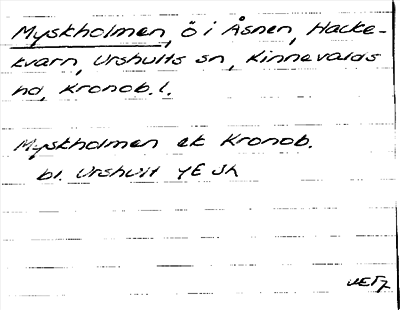 Myskholmen, ö i Åsnen, Hacke-
kvarn, Urshults sn, Kinnevalds
hd, Kronob. l.
Myskholmen ek Kronob.
bl. Urshult 4E Sh